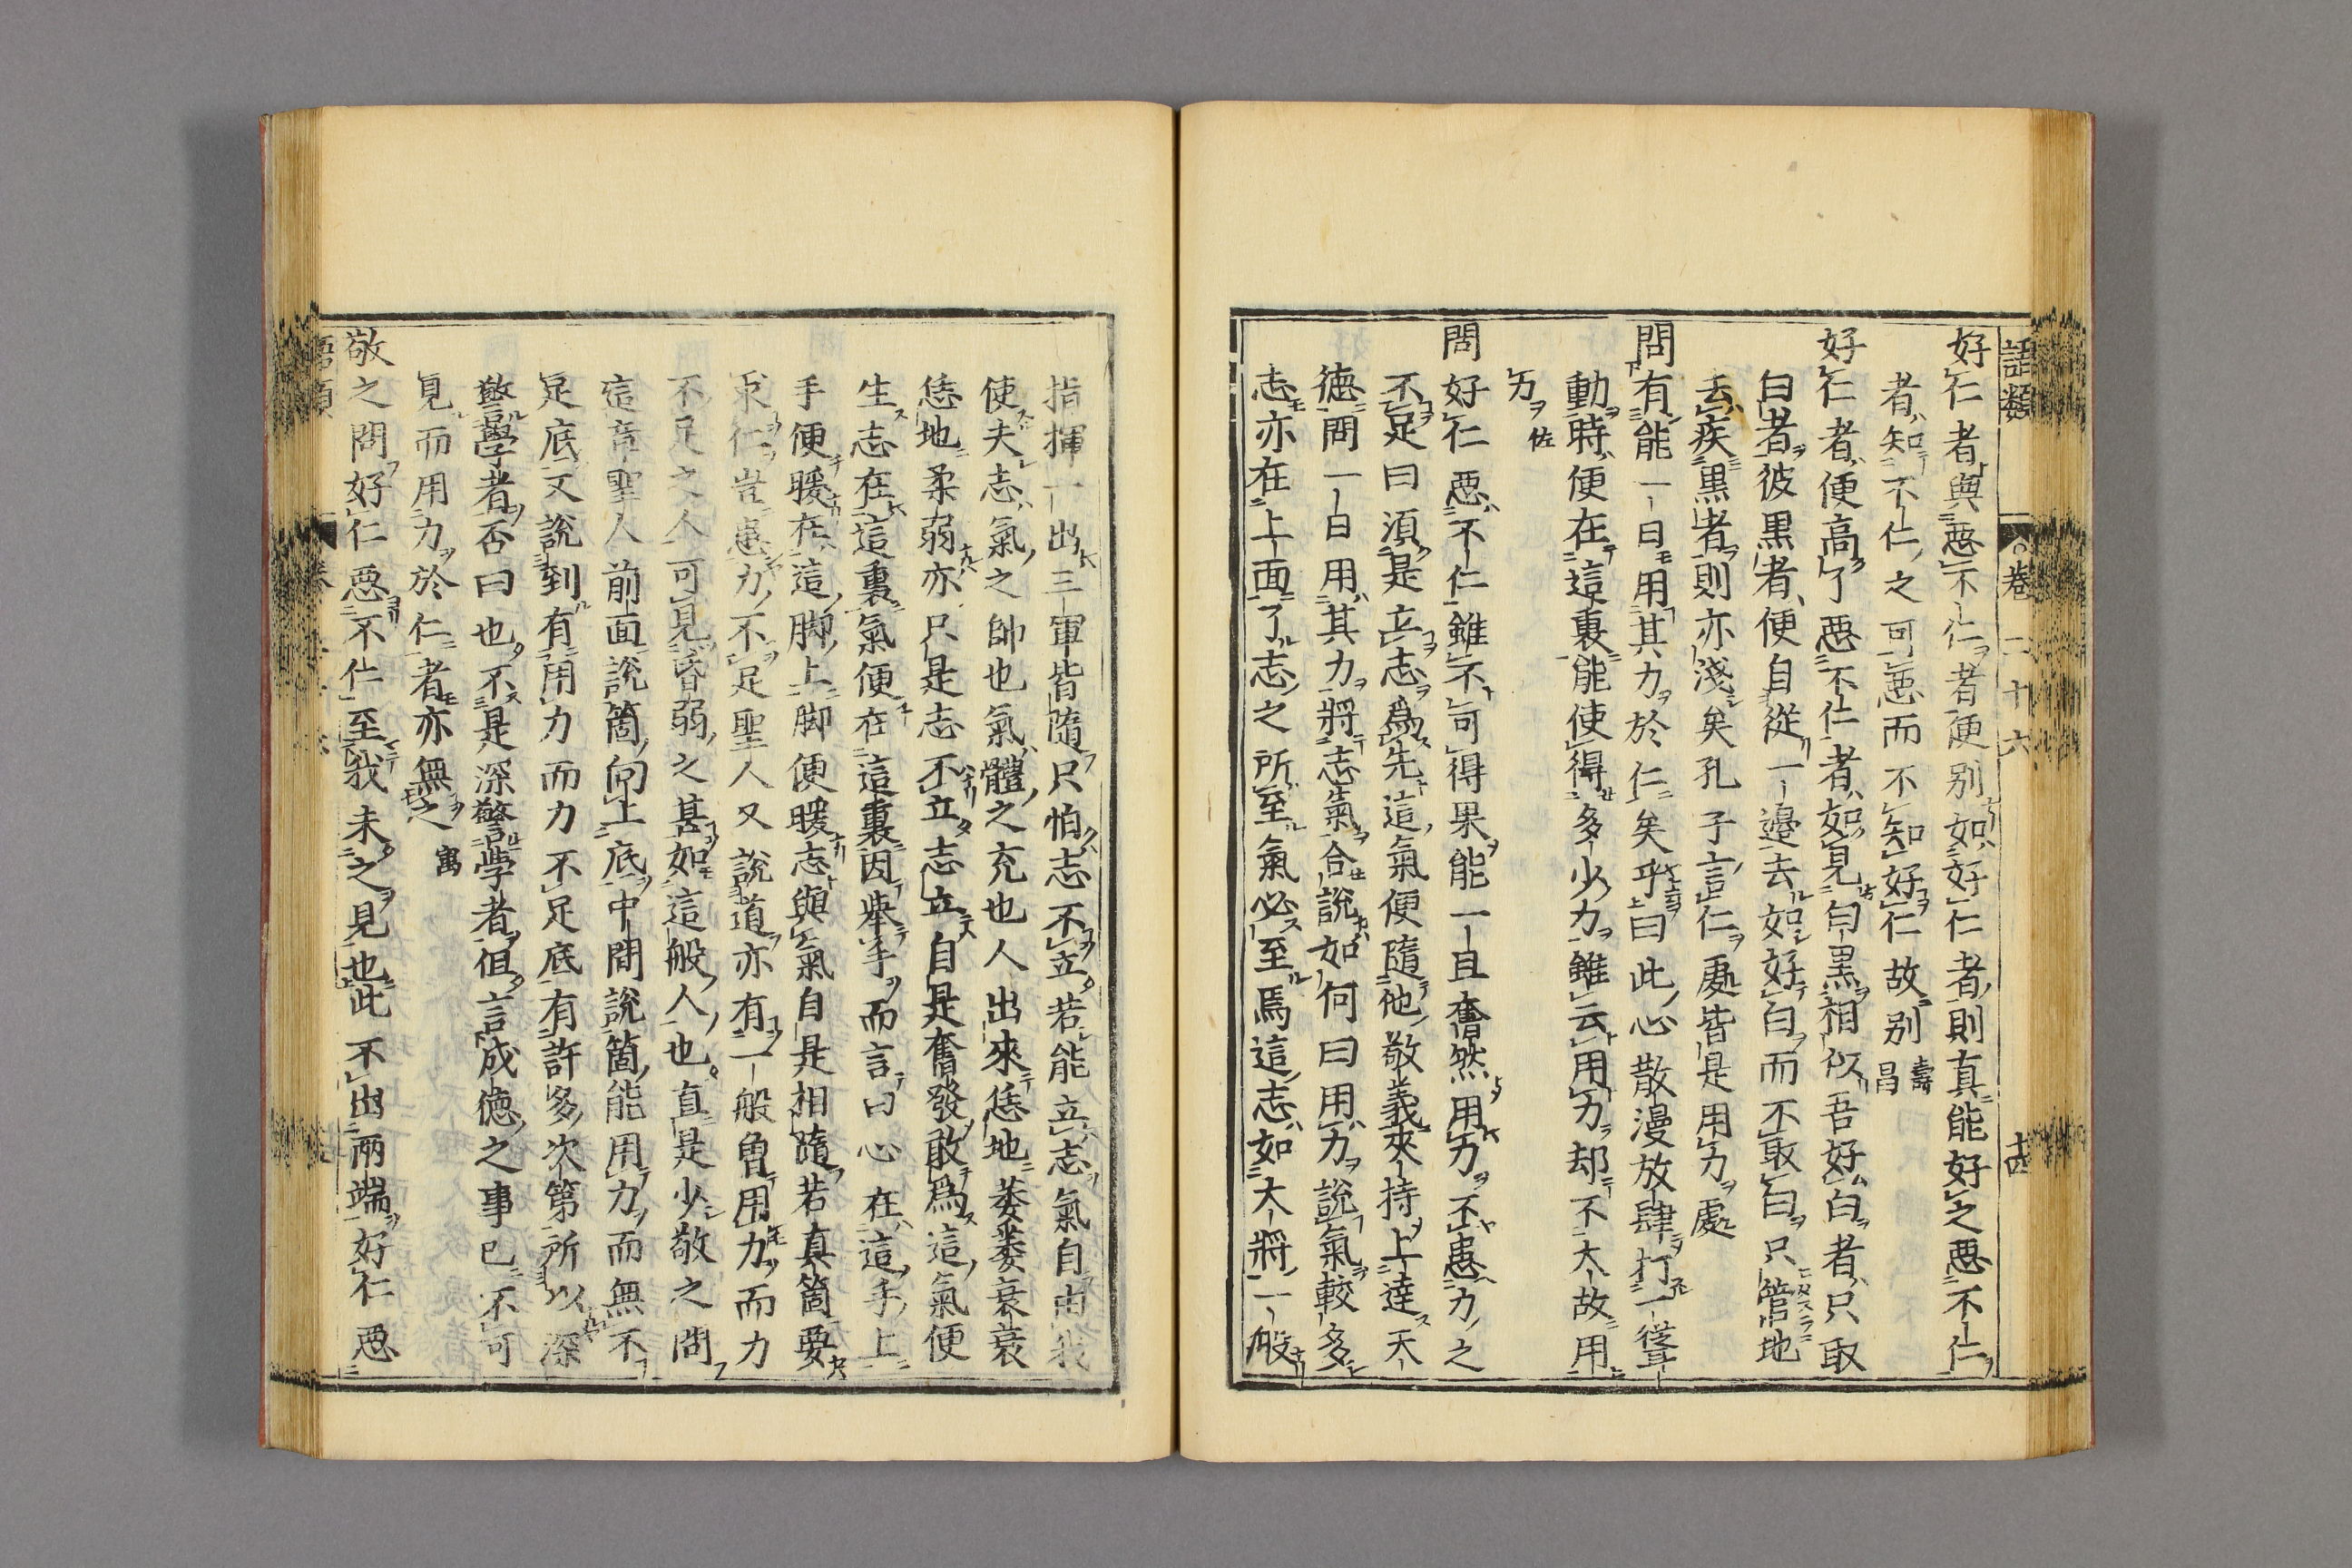 語類 卷二十六 十四
好仁者與惡不仁者便别如好仁者則真能好之惡不仁
者知不仁之可惡而不知好仁故别 壽昌
好仁者便高了惡不仁者如見白黒相似吾好白者只取
白者彼黒者便自從一邉去如好白而不取白只管地
去疾黒者則亦淺矣孔子言仁處皆是用力處
問有能一日用其力於仁矣乎曰此心散漫放肆打一聳
動時便在這裏能使得多少力雖云用力却不大故用
力 佐
問好仁惡不仁雖不可得果能一旦奮然用力不患力之
不足曰須是立志爲先這氣便隨他敬義夾持上達天
徳問一日用其力將志氣合說如何曰用力說氣較多
志亦在上面了志之所至氣必至焉這志如大將一般
指揮一出三軍皆隨只怕志不立若能立志氣自由我
使夫志氣之帥也氣體之充也人出來恁地萎萎衰衰
恁地柔弱亦只是志不立志立自是奮發敢爲這氣便
生志在這裏氣便在這裏因舉手而言曰心在這手上
手便暖在這脚上脚便暖志與氣自是相隨若真箇要
求仁豈患力不足聖人又說道亦有一般曾用力而力
不足之人可見昏弱之甚如這般人也直是少敬之問
這章聖人前面說箇向上底中間說箇能用力而無不
足底又說到有用力而力不足底有許多次第所以深
警學者否曰也不是深警学者但言成徳之事已不可
見而用力於仁者亦無之 㝢
敬之問好仁惡不仁至我未之見也此不出兩端好仁惡